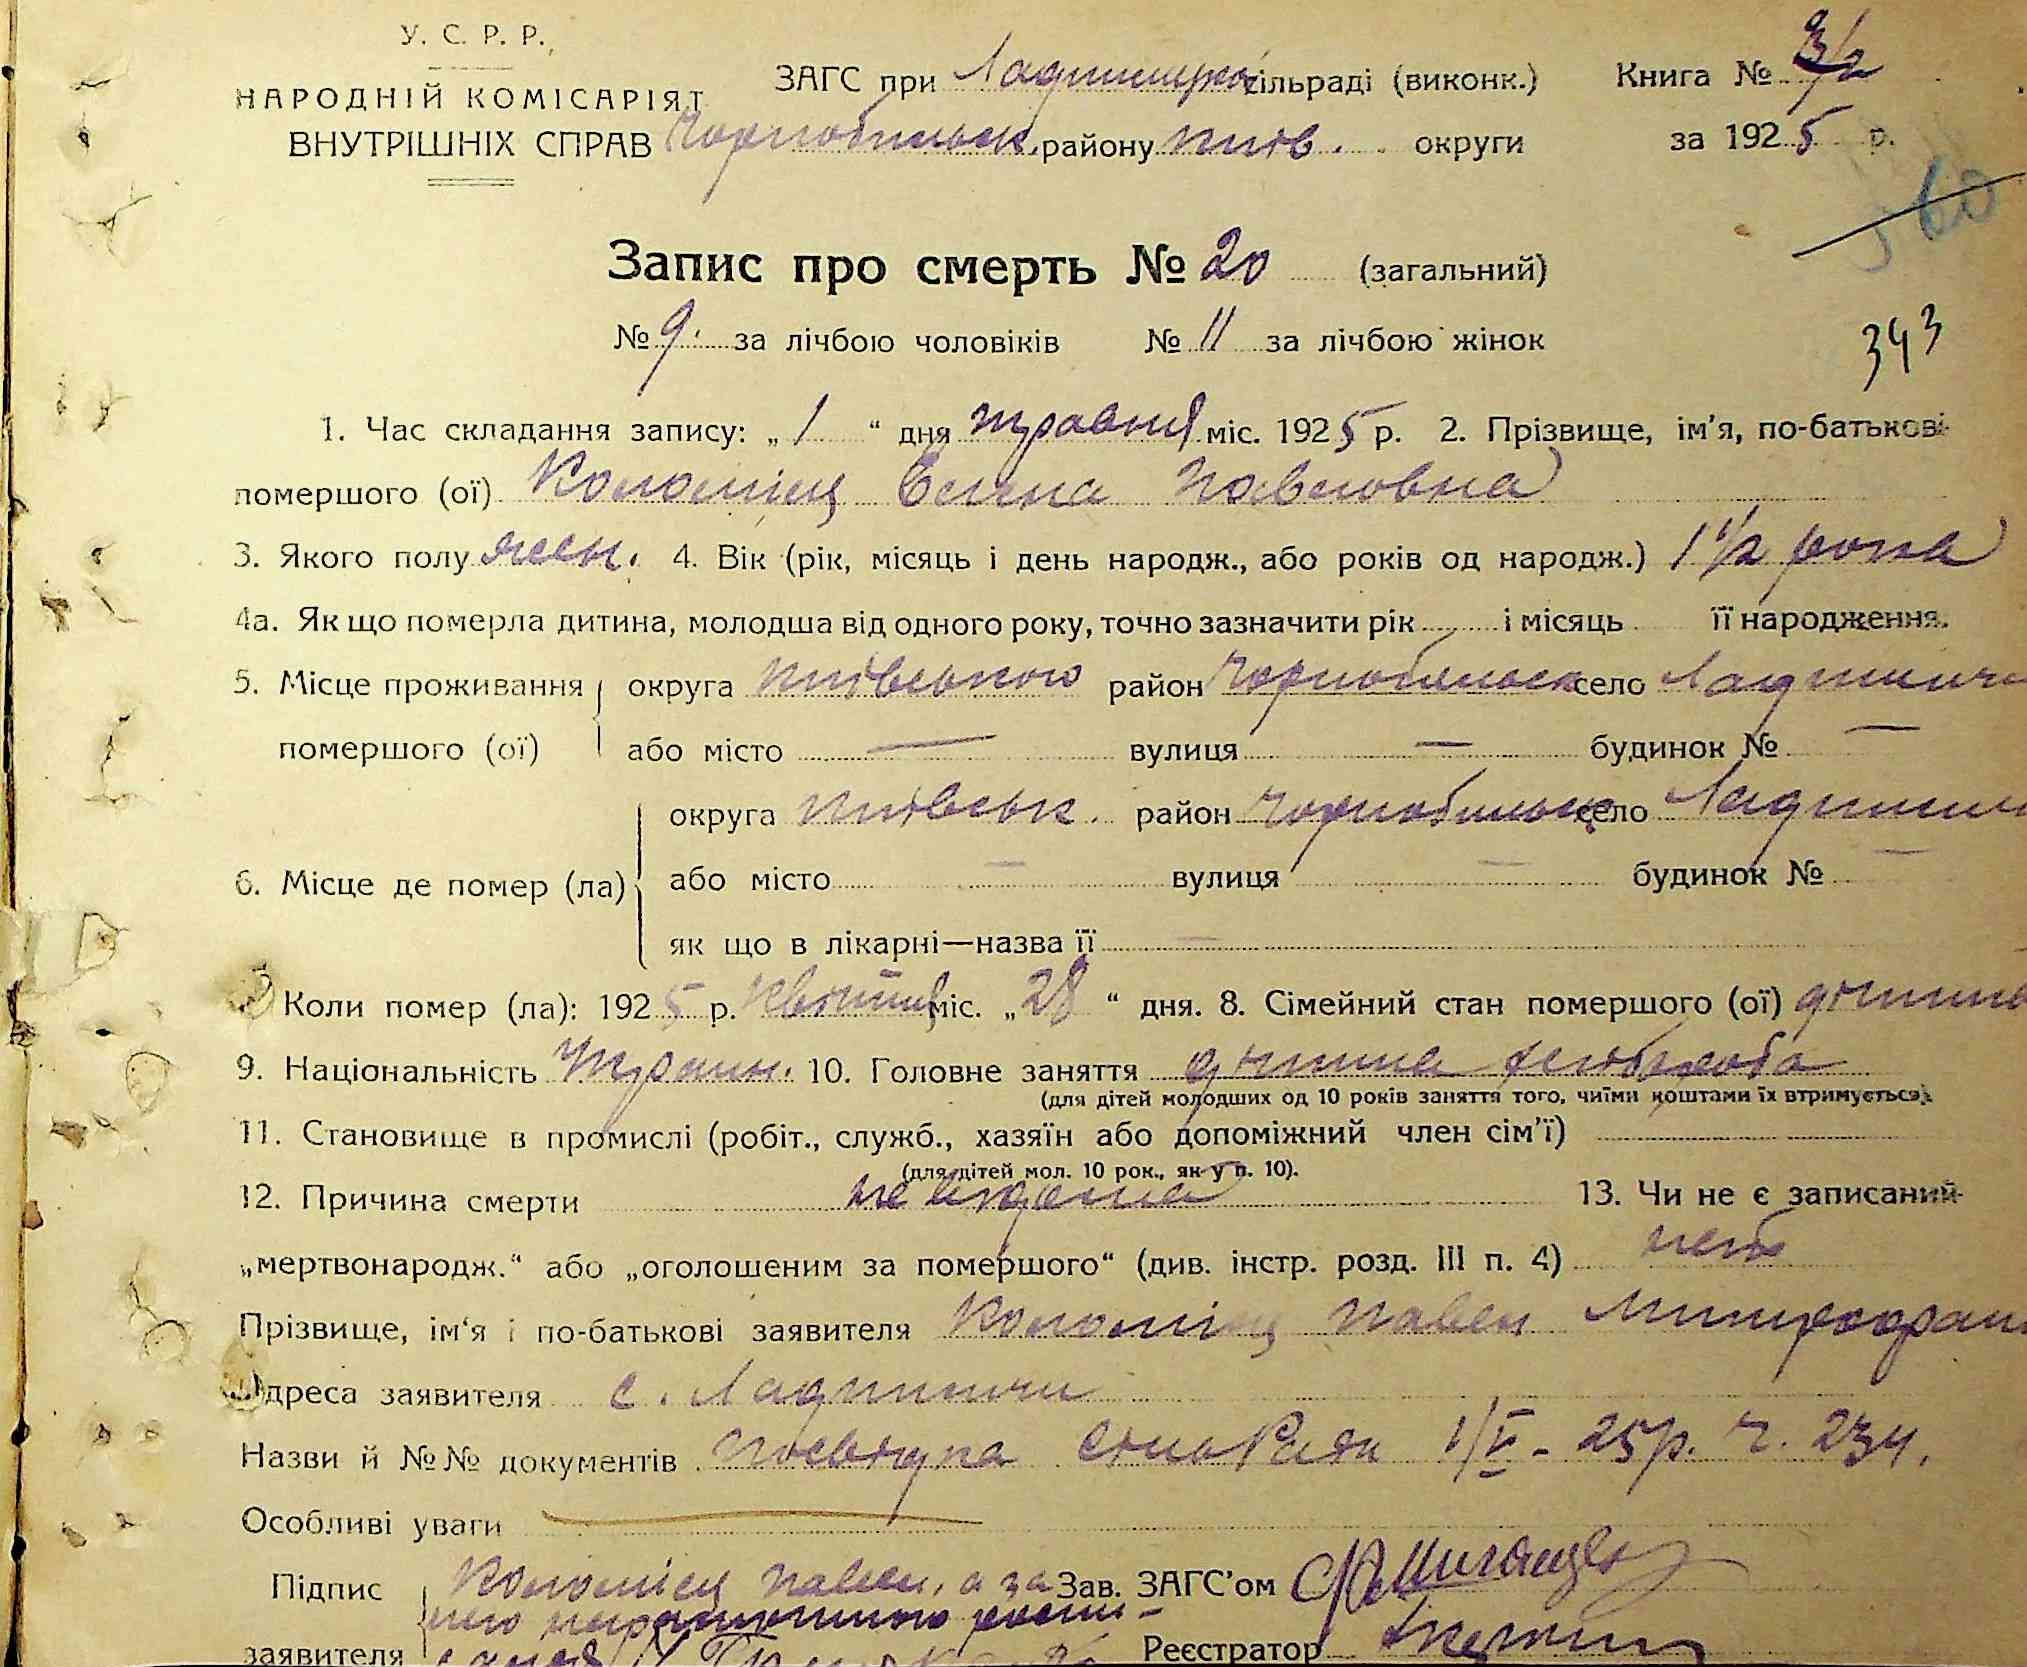 У. С. Р. Р.
НАРОДНІЙ КОМІСАРІЯТ
ВНУТРІШНІХ СПРАВ
ЗАГС при Ладижицькій сільраді (виконк.) Книга № 3/2
Чорнобильськ. району Київ. округи за 1925 р.
360
Запис про смерть № 20 (загальний)
№ 9. за лічбою чоловіків № 11 за лічбою жінок
343
1. Час складання запису: „ 1 “ дня травня міс. 1925 р. 2. Прізвище, ім'я, по-батькові
помершого (ої) Коломієц Елена Павловна
3. Якого полу жен. 4. Вік (рік, місяць і день народж., або років од народж.) 1 1/2 рока
4а. Як що померла дитина, молодша від одного року, точно зазначити рік і місяць її народження.
5. Місце проживання округа Київською район Чорнобильськ село Ладижичи
помершого (ої) або місто — вулиця — будинок № —
округа Київськ. район Чорнобильськ село Ладижи
6. Місце де помер (ла) або місто — вулиця — будинок № —
як що в лікарні—назва її —
Коли помер (ла): 1925 р. Квітня міс. „ 28 “ дня. 8. Сімейний стан помершого (ої) дитина
9. Національність Украин. 10. Головне заняття дитина хлібороба
(для дітей молодших од 10 років заняття того, чиїми коштами їх втримується).
11. Становище в промислі (робіт., служб., хазяїн або допоміжний член сім'ї)
(для дітей мол. 10 рок., як у п. 10).
12. Причина смерти не відома 13. Чи не є записаний
„мертвонародж.“ або „оголошеним за помершого“ (див. інстр. розд. III п. 4) нет
Прізвище, ім'я і по-батькові заявителя Коломієц Павел
Адреса заявителя с. Ладижичи
Назви й №№ документів посвідка сільРади 1/V - 25р. Ч. 234.
Особливі уваги
Підпис Коломієц Павел, а за Зав. ЗАГС'ом
него неграмотного
заявителя Реєстратор